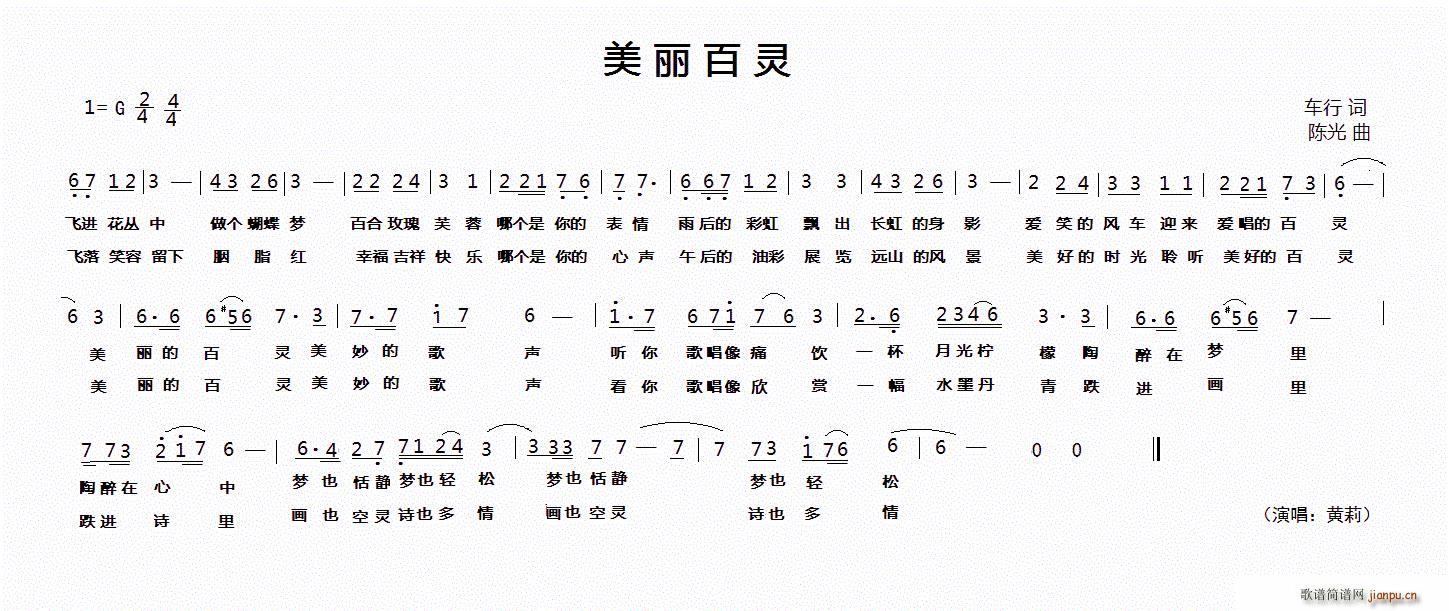 美丽百灵
1= G 2/4 4/4
车行 词
陈光 曲
67 12 | 3 — | 43 26 | 3 — | 22 24 | 3 1 | 221 76 | 7 7· | 667 12 | 3 3 | 43 26 | 3 — | 2 24 | 33 11 | 221 73 | 6 — |
飞进 花丛 中 做个 蝴蝶 梦 百合 玫瑰 芙 蓉 哪个是 你的 表 情 雨后的 彩虹 飘 出 长虹 的身 影 爱 笑的 风车 迎来 爱唱的 百 灵
飞落 笑容 留下 胭 脂 红 幸福 吉祥 快 乐 哪个是 你的 心 声 午后的 油彩 展 览 远山 的风 景 美 好的 时光 聆听 美好的 百 灵
6 3 | 6·6 6#56 7·3 | 7·7 17 6 — | 1·7 671 76 3 | 2·6 2346 3·3 | 6·6 6#56 7 — |
美 丽的 百 灵美 妙的 歌 声 听你 歌唱像 痛 饮 一杯 月光柠 檬陶 醉在 梦 里
美 丽的 百 灵美 妙的 歌 声 看你 歌唱像 欣 赏 一幅 水墨丹 青跌 进 画 里
7 73 217 6 — | 6·4 27 7124 3 | 333 77 — 7 | 7 73 176 6 | 6 — 0 0 ‖
陶醉在 心 中 梦也 恬静 梦也轻 松 梦也 恬静 梦也 轻 松
跌进 诗 里 画也 空灵 诗也多 情 画也 空灵 诗也 多 情
（演唱：黄莉）
歌谱简谱网 jianpu.cn